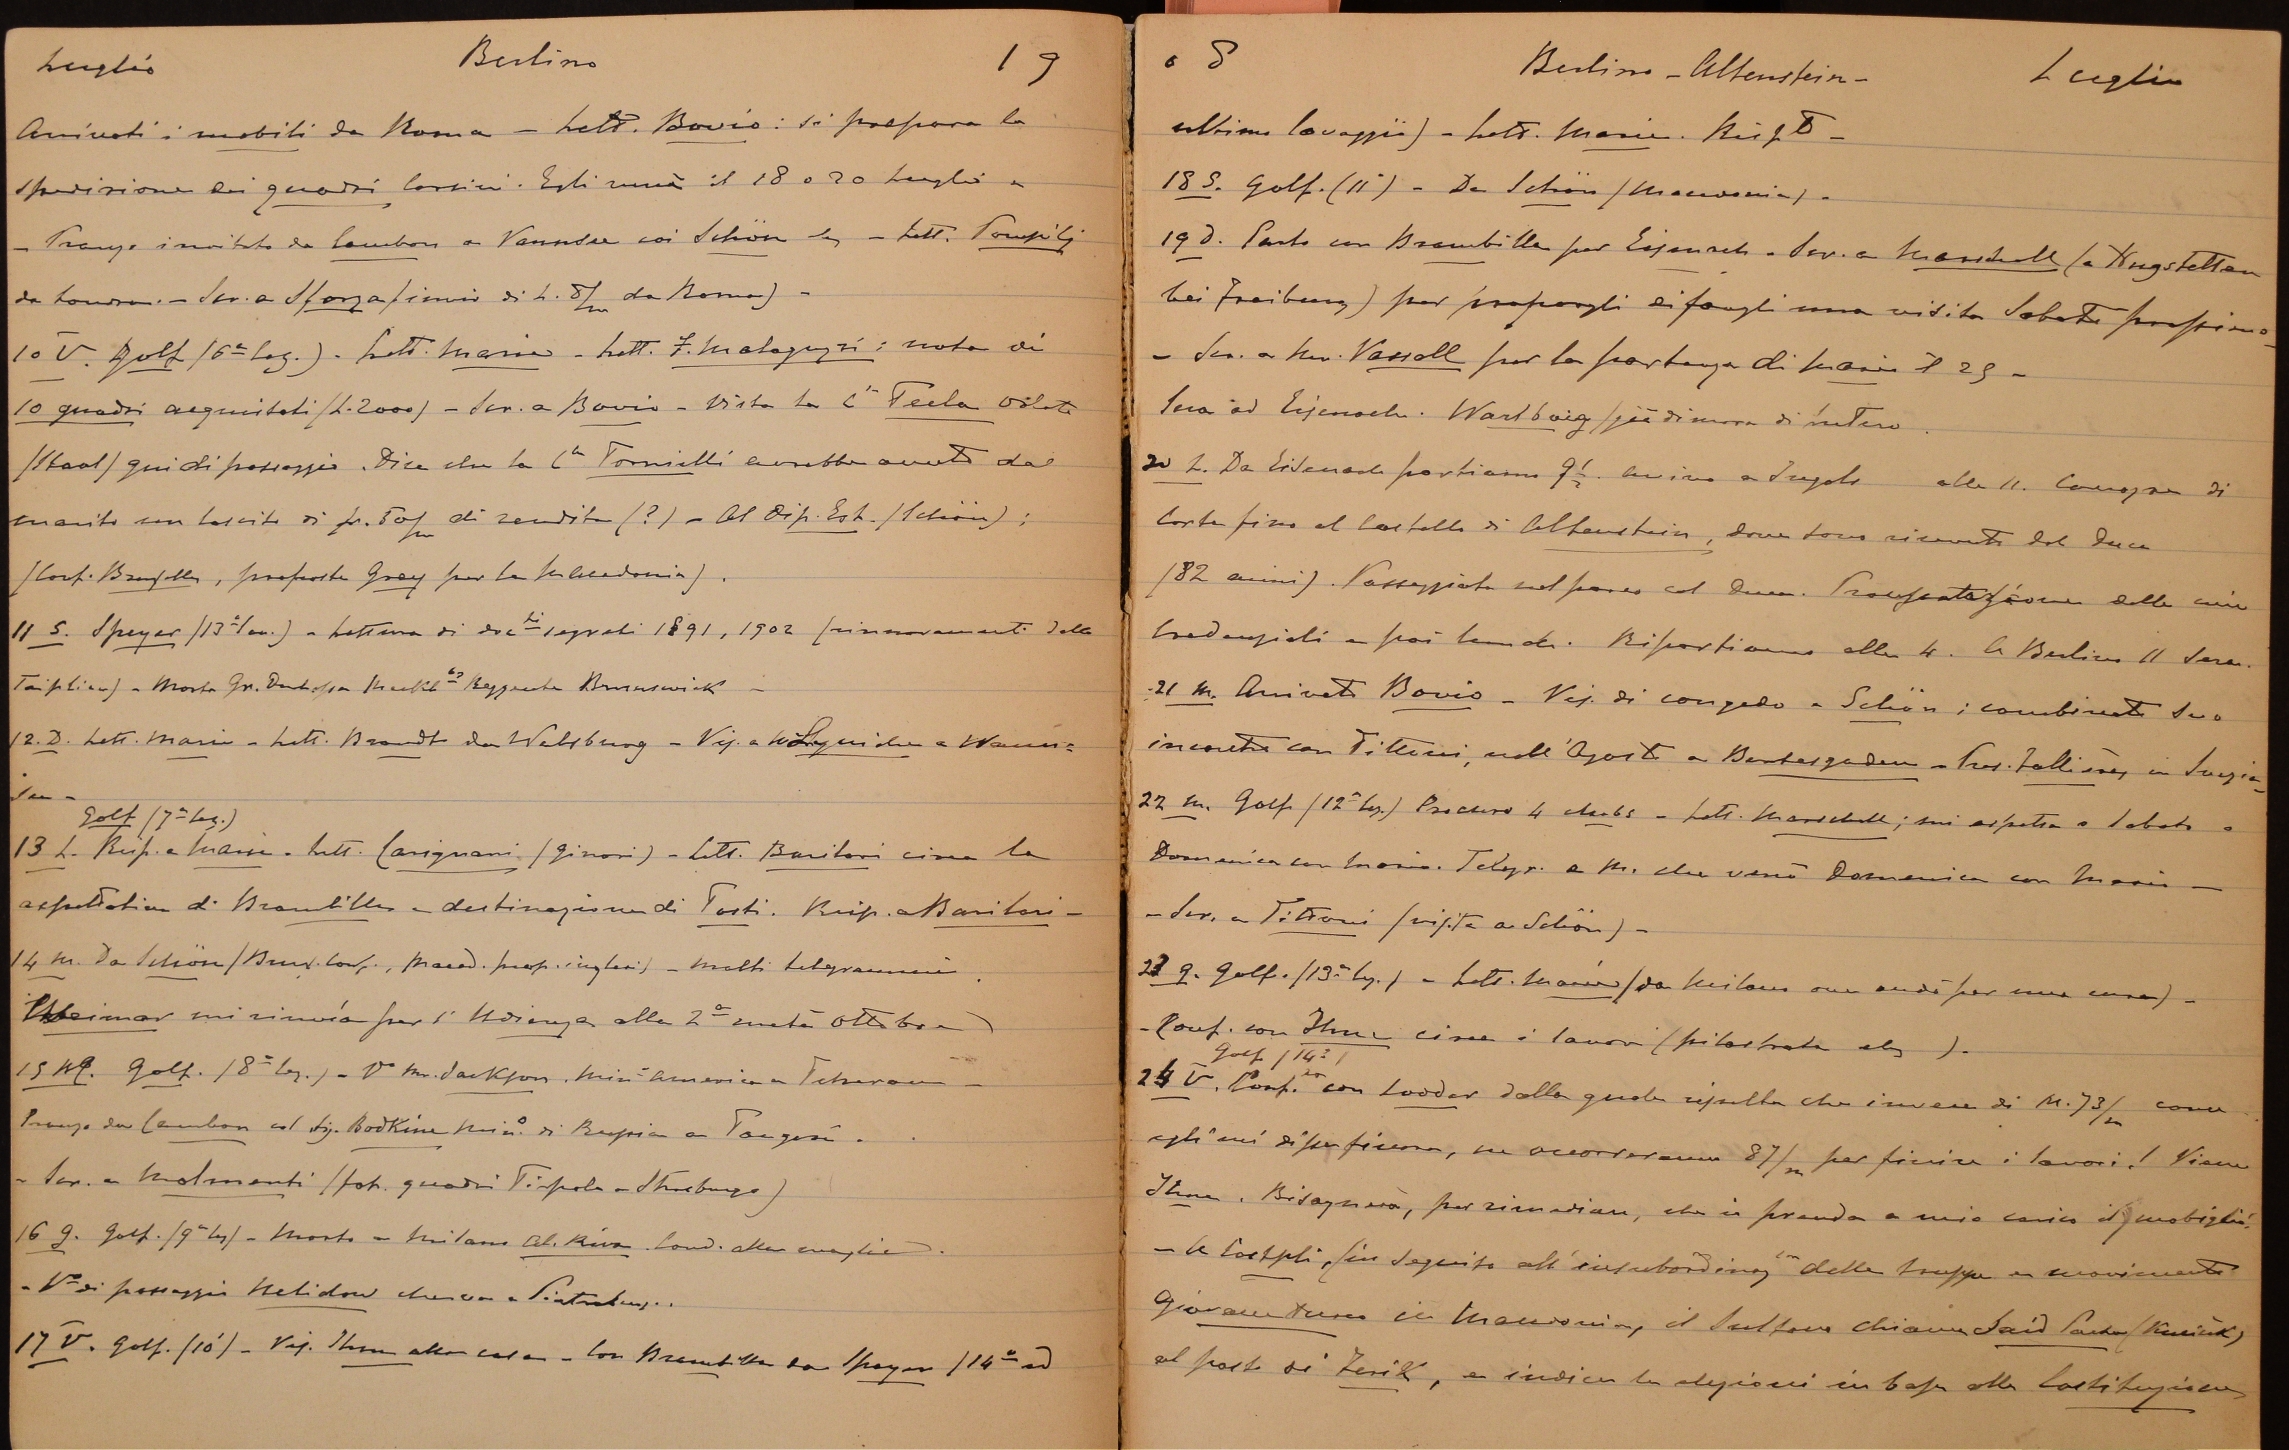 Luglio Berlino 19
Arrivati i mobili da Roma – Lett. Bovio: si prepara la
spedizione dei quadri Corsini. Egli verrà il 18 o 20 Luglio –
– Pranzo invitato da Cambon a Vannsee coi Schön – Lett. Pompilj
da Londra. – Scr. a Sforza (invio di L. 8/m da Roma) –
10 V. Golf (6ª lez.) – Lett. Marie – Lett. F. Malaguzzi: nota di
10 quadri acquistati (L. 2000) – Scr. a Bovio – Vista la Cª Tecla
(Staal) qui di passaggio. Dice che la Cª Tornielli avrebbe avuto dal
marito un lascito di fr. 50/m di rendita (?) – Al Dip. Est. (Schön);
(Conf. Bruxelles, proposta Grey per la Macedonia).
11 S. Speyer (13ª) – Lettura di docti segreti 1891, 1902 (rinnovamenti della
Triplice) – Morto Gr. Duchessa Meckl Reggente Brunswick –
12. D. Lett. Marie – Lett. Brandt da Welsburg – Vis. a a Wann=
see –
Golf (7ª lez.)
13 L. Risp. a Marie – Lett. Carignani (Ginori) – Lett. Barilari circa la
aspettativa di Brambilla e destinazione di Tosti. Risp. a Barilari –
14 M. Da Schön (Brux. Conf., Maced. prop. inglesi) – Molti telegrammi.
Weimar mi rinvia per l'Udienza alla 2ª metà Ottobre
15 M. Golf. (8ª lez.) – Vº Mr. Jackson. Minº America a Teheran –
Pranzo da Cambon col Sig. Bodkine Minº di Russia a Tangeri.
– Scr. a Molmenti (fot. quadri Tiepolo a Strasburgo)
16 G. Golf. (9ª lez) – Morto a Milano Al. Riva. Cond. alla moglie.
– Vº di passaggio Nelidow che va a Pietroburg.
17 V. Golf. (10ª) – Vis. Ihne alla casa – Con Brambilla da Speyer (14ª ed
08 Berlino – Altenstein – Luglio
ultimo lavaggio) – Lett. Marie. Rispª –
18 S. Golf. (11ª) – Da Schön (Macedonia).
19 D. Parto con Brambilla per Eisenach – Scr. a Marschall (a Hugstetten
bei Freiburg) per proporgli di fargli una visita Sabato prossimo
– Scr. a Mr. Vassall per la partenza di Marie il 25 –
Sera ad Eisenach. Wartburg (già dimora di Lutero.
20 L. Da Eisenach partiamo 9½. arrivo a alle 11. Carrozza di
Corte fino al Castello di Altenstein, dove sono ricevuto dal Duca
(82 anni). Passeggiata nel parco col Duca. Presentazione delle mie
credenziali e poi lunch. Ripartiamo alle 4. A Berlino 11 sera.
21 M. Arrivato Bovio – Vis. di congedo a Schön; combinato suo
incontro con Tittoni, nell'Agosto a Berchtesgaden – Pres. Fallières in Svezia
22 M. Golf (12ª lez.) Procuro 4 clubs – Lett. Marschall; mi aspetta o Sabato o
Domenica con Marie. Telegr. a M. che verrò Domenica con Marie –
– Scr. a Tittoni (visita a Schön) –
23 G. Golf. (13ª lez.) – Lett. Marie (da Milano ove andò per una cura) –
– Conf. con Ihne circa i lavori (pilastrata).
Golf (14ª)
24 V. Conf. con dalla quale risulta che invece di M. 73/m come
egli mi disse finora, ne occorreranno 87/m per finire i lavori! Viene
Ihne. Bisognerà, per rimediare, che io prenda a mio carico il mobiglio.
– A Costpli, (in seguito all'insubordinaz della truppa e movimento
Giovane turco in Macedonia, il Sultano chiama Said Pacha (Kuciuk)
al posto di Ferik, e indica le elezioni in base alla Costituzione